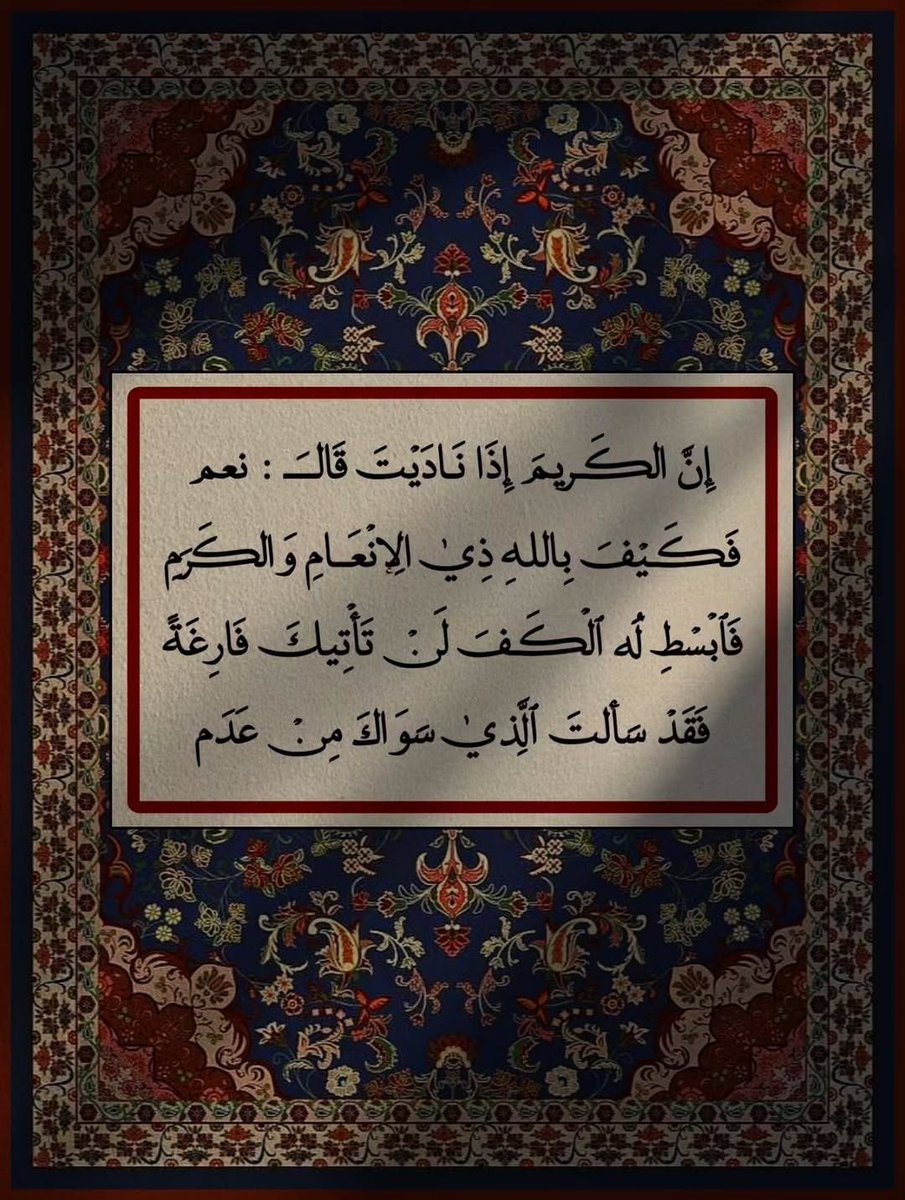 إِنَّ الكَريمَ إِذَا نَادَيْتَ قَالَ : نعم
فَكَيْفَ بِاللهِ ذِي الِإنْعَامِ وَالكَرَمِ
فَٱبْسْطِ لُه ٱلْكَفَ لَنْ تَأْتِيكَ فَارِغَةً
فَقَدْ سَألتَ ٱلَّذِي سَوَاكَ مِنْ عَدَم